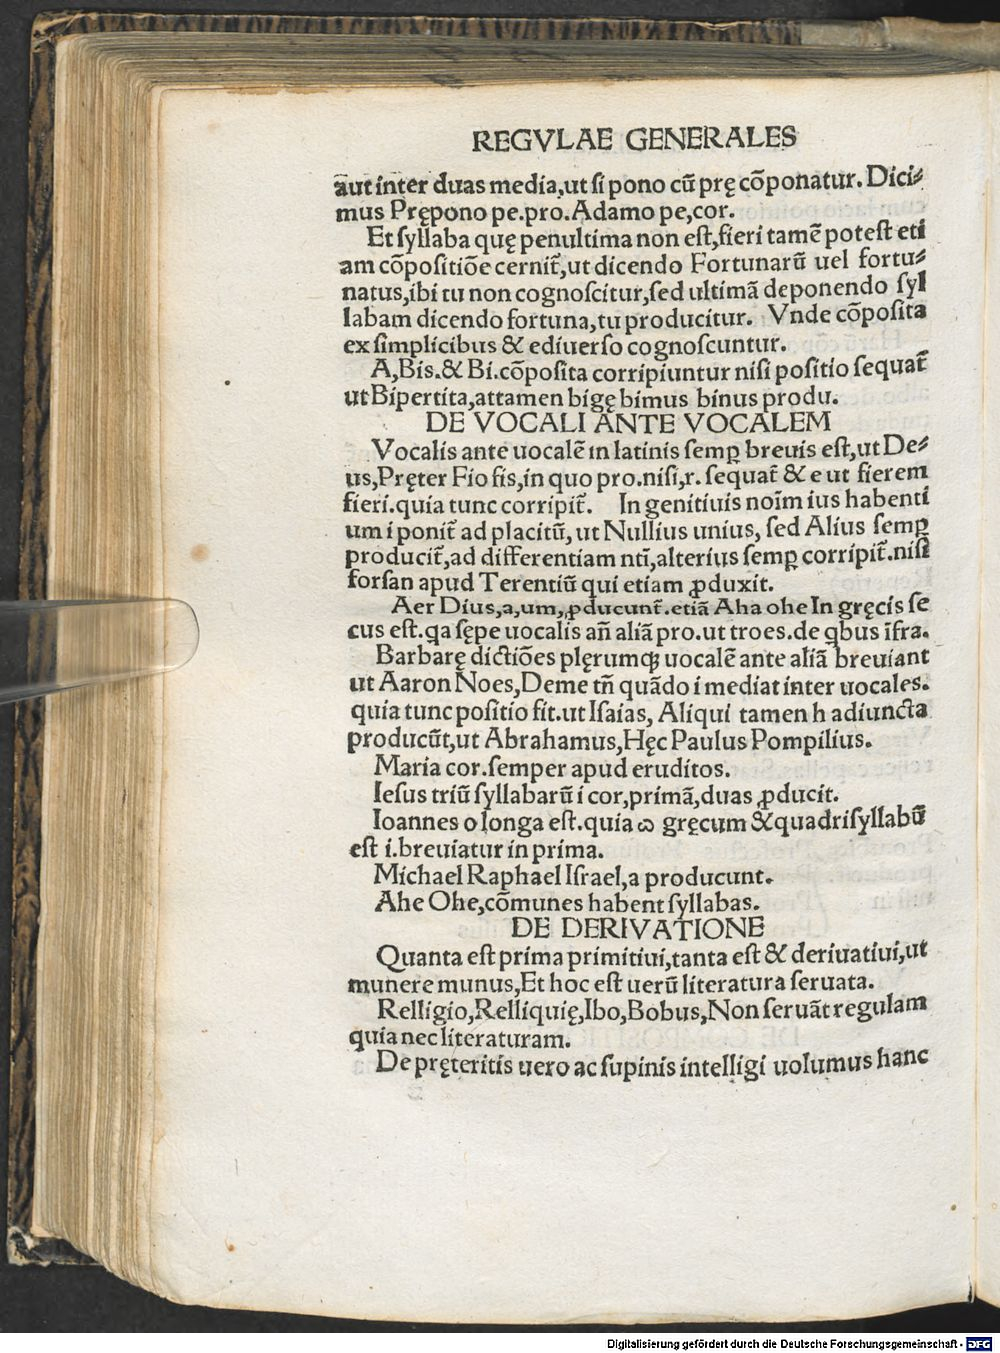 REGVLAE GENERALES
aut inter duas media,ut si pono cũ prę cõponatur. Dici⸗
mus Prępono pe.pro. Adamo pe,cor.
Et syllaba quę penultima non est,fieri tamẽ potest eti
am cõpositiõe cernit̃,ut dicendo Fortunarũ uel fortu⸗
natus,ibi tu non cognoscitur,sed ultimã deponendo syl
labam dicendo fortuna,tu producitur. Vnde cõposita
ex simplicibus & ediuerso cognoscuntur.
A,Bis.& Bi.cõposita corripiuntur nisi positio sequat̃
ut Bipertita,attamen bigę bimus binus produ.
DE VOCALI ANTE VOCALEM
Vocalis ante uocalẽ in latinis semꝑ breuis est,ut De⸗
us,Pręter Fio fis,in quo pro.nisi,r. sequat̃ & e ut fierem
fieri.quia tunc corripit̃. In genitiuis noĩm ius habenti
um i ponit̃ ad placitũ, ut Nullius unius, sed Alius semꝑ
producit̃,ad differentiam ntĩ,alterius semꝑ corripit̃.nisi
forsan apud Terentiũ qui etiam ꝓduxit.
Aer Dius,a,um,ꝓducunt̃.etiã Aha ohe In gręcis se
cus est.qa sępe uocalis añ aliã pro.ut troes.de qbus ĩfra.
Barbarę dictiões plęrumqꝫ uocalẽ ante aliã breuiant
ut Aaron Noes,Deme tñ quãdo i mediat inter uocales.
quia tunc positio fit.ut Isaias, Aliqui tamen h adiuncta
producũt,ut Abrahamus,Hęc Paulus Pompilius.
Maria cor.semper apud eruditos.
Iesus triũ syllabarũ i cor,primã,duas ꝓducit.
Ioannes o longa est.quia ω gręcum &quadrisyllabũ
est i.breuiatur in prima.
Michael Raphael Israel,a producunt.
Ahe Ohe,cõmunes habent syllabas.
DE DERIVATIONE
Quanta est prima primitiui,tanta est & deriuatiui,ut
munere munus,Et hoc est uerũ literatura seruata.
Relligio,Relliquię,Ibo,Bobus,Non seruãt regulam
quia nec literaturam.
De pręteritis uero ac supinis intelligi uolumus hanc
Digitalisierung gefördert durch die Deutsche Forschungsgemeinschaft - DFG